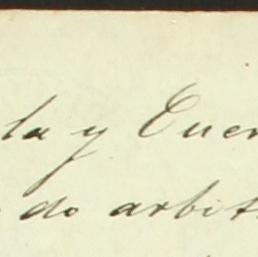 la y Cuer
do arbit